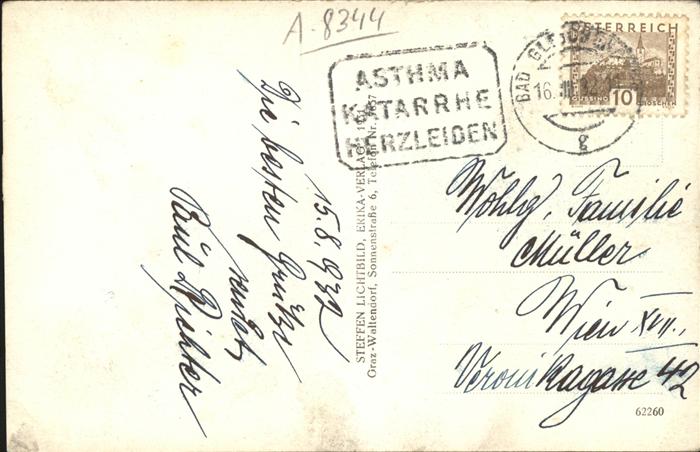 A-8344
ÖSTERREICH
GÜSSING 10 GROSCHEN
BAD GLEICHENBERG
16. VIII. 32
g
ASTHMA
KATARRHE
HERZLEIDEN
15.8.932
Die besten Grüße
sendet
Paul Richter
STEFFEN LICHTBILD, ERIKA-VERLAG
Graz-Waltendorf, Sonnenstraße 6, Telefon Nr.
Wohlg. Familie
Müller
Wien XVII.,
Veronikagasse 42
62260